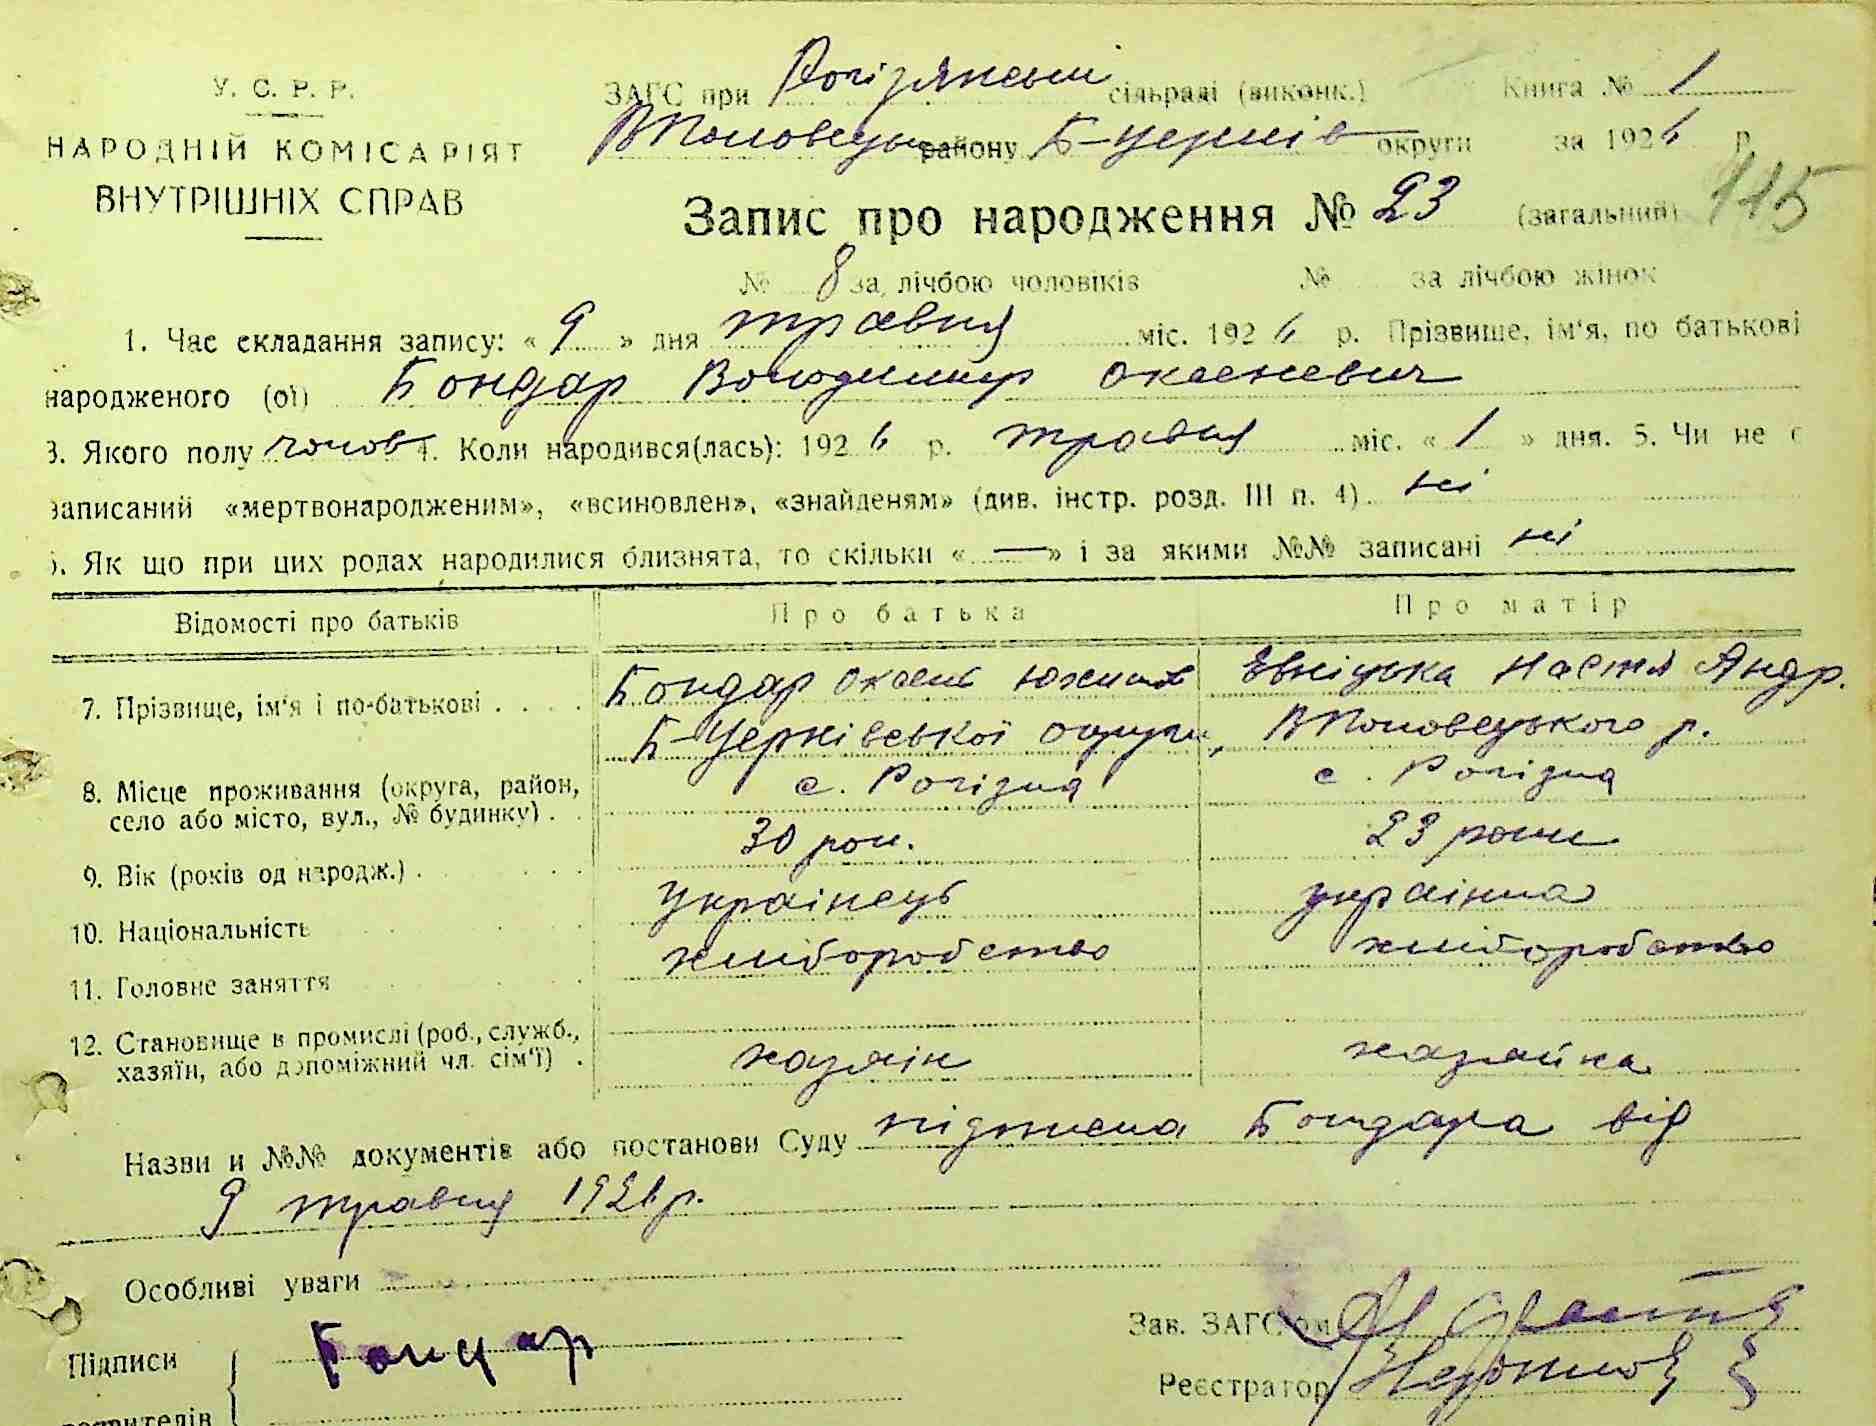 У. С. Р. Р.
НАРОДНІЙ КОМІСАРІЯТ
ВНУТРІШНІХ СПРАВ
ЗАГС при Рогізянській сільраді (виконк.) Книга № 1
району Б-Церків округи за 1926 р.
Запис про народження № 23 (загальний) 115
№ 8 за лічбою чоловіків № за лічбою жінок
1. Час складання запису: « 9 » дня травня міс. 1926 р. Прізвище, ім‘я, по батькові
народженого (ої) Бондар Володимир Оксеневич
3. Якого полу чолов 4. Коли народився(лась): 1926 р. травня міс. « 1 » дня. 5. Чи не є
записаний «мертвонародженим», «всиновлен», «знайденям» (див. інстр. розд. III п. 4) ні
6. Як що при цих родах народилися близнята, то скільки « — » і за якими №№ записані ні
Відомості про батьків Про батька Про матір
7. Прізвище, ім‘я і по-батькові Бондар Оксень Настя Андр.
Б-Церківської округи, р.
8. Місце проживання (округа, район, с. Рогізна с. Рогізна
село або місто, вул., № будинку)
9. Вік (років од народж.) 30 рок. 23 роки
10. Національність українець українка
11. Головне заняття хліборобство хліборобство
12. Становище в промислі (роб., служб.,
хазяїн, або допоміжний чл. сім‘ї) хазяін хазяйка
Назви и №№ документів або постанови Суду підписка Бондара від
9 травня 1926 р.
Особливі уваги
Зав. ЗАГС‘ом
Підписи Бондар
Реєстратор
заявителів